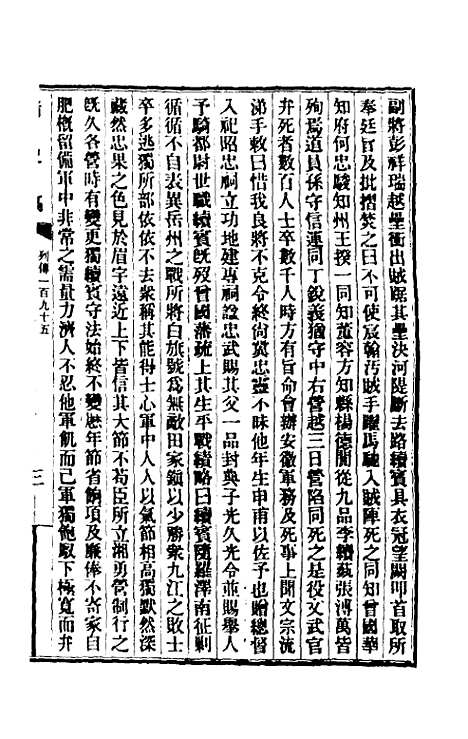 副將彭祥瑞越壘衝出賊踞其壘決河隄斷去路續賓具衣冠望闕叩首取所
奉廷旨及批摺焚之曰不可使宸翰汚賊手躍馬馳入賊陣死之同知曾國華
知府何忠駿知州王揆一同知董容方知縣楊德誾從九品李續蓺張溥萬皆
殉焉道員孫守信運同丁銳義猶守中右營越三日營陷同死之是役文武官
弁死者數百人士卒數千人時方有旨命會辦安徽軍務及死事上聞文宗流
涕手敕曰惜我良將不克令終尚冀忠靈不昧他年生申甫以佐予也贈總督
入祀昭忠祠立功地建專祠諡忠武賜其父一品封典子光久光令並賜舉人
予騎都尉世職續賓旣歿曾國藩疏上其生平戰績略曰續賓隨羅澤南征剿
循循不自表異岳州之戰所將白旗號爲無敵田家鎮以少勝衆九江之敗士
卒多逃獨所部依依不去衆稱其能得士心軍中人人以氣節相高獨默然深
藏然忠果之色見於眉宇遠近上下皆信其大節不苟臣所立湘勇營制行之
旣久各營時有變更獨續賓守法始終不變歷年節省餉項及廉俸不寄家自
肥槪留備軍中非常之需量力濟人不忍他軍飢而己軍獨飽馭下極寬而弁
列傳一百九十五